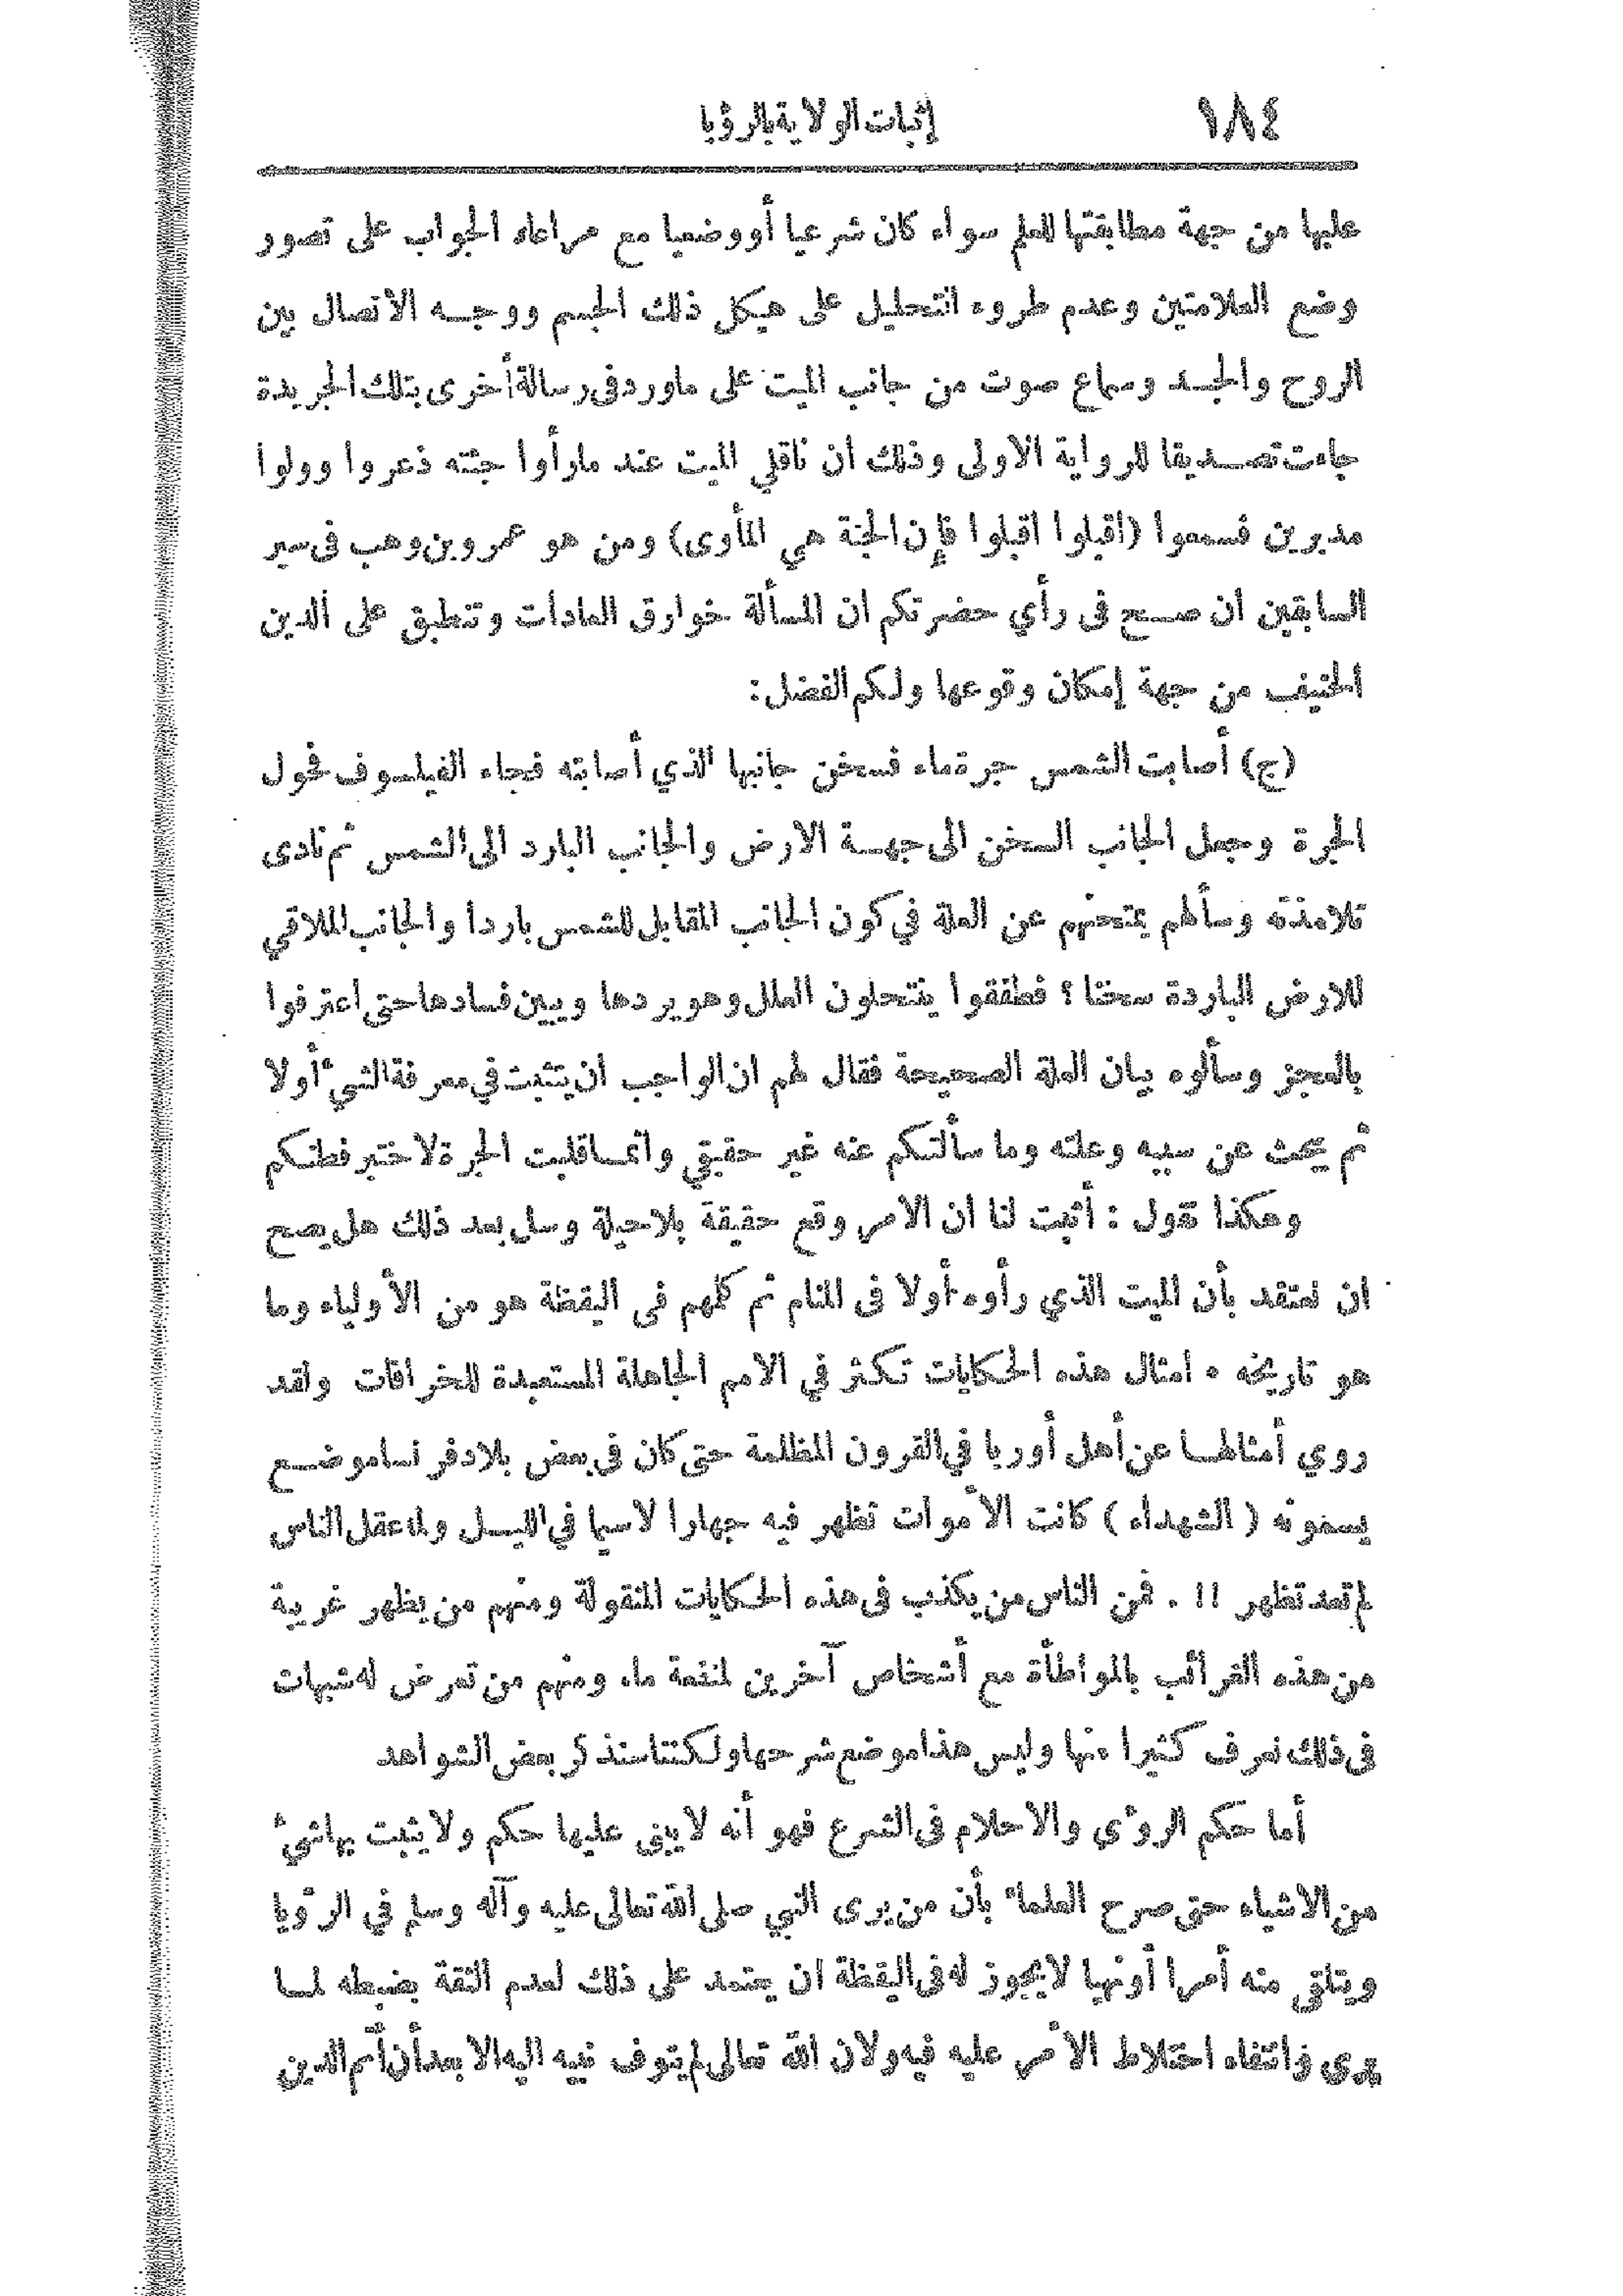 ١٨٤ إثبات الولاية بالرؤيا
عليها من جهة مطابقتها للعلم سواء كان شرعيا أو وضعيا مع مراعاة الجواب على تصور
وضع العلامتين وعدم طروء التحليل على هيكل ذلك الجسم ووجه الاتصال بين
الروح والجسد وسماع صوت من جانب الميت على ماورد فى رسالة أخرى بتلك الجريدة
جاءت تصديقا للرواية الاولى وذلك ان ناقلي الميت عند مارأوا جثته ذعروا وولوا
مدبرين فسمعوا (اقبلوا اقبلوا فإن الجنة هي المأوى) ومن هو عمرو بن وهب فى سير
السابقين ان صح فى رأي حضرتكم ان المسألة خوارق العادات وتنطبق على الدين
الحنيف من جهة إمكان وقوعها ولكم الفضل:
(ج) أصابت الشمس جرة ماء فسخن جانبها الذي أصابته فجاء الفيلسوف فحول
الجرة وجعل الجانب السخن الى جهة الارض والجانب البارد الى الشمس ثم نادى
تلامذته وسألهم يمتحنهم عن العلة في كون الجانب المقابل للشمس باردا والجانب الملاقي
للارض الباردة سخنا ؟ فطفقوا ينتحلون العلل وهو يردها ويبين فسادها حتى اعترفوا
بالعجز وسألوه بيان العلة الصحيحة فقال لهم ان الواجب ان يتثبت في معرفة الشيء أولا
ثم يبحث عن سببه وعلته وما سألتكم عنه غير حقيقي وانما قلبت الجرة لاختبر فطنتكم
وهكذا نقول : أثبت لنا ان الامر وقع حقيقة بلا حيلة وسل بعد ذلك هل يصح
ان نعتقد بأن الميت الذي رأوه أولا فى المنام ثم كلمهم فى اليقظة هو من الأولياء وما
هو تاريخه ٠ امثال هذه الحكايات تكثر في الامم الجاهلة المستعبدة للخرافات ولقد
روي أمثالها عن أهل أوربا في القرون المظلمة حتى كان فى بعض بلاد فرنسا موضع
يسمونه ( الشهداء ) كانت الأموات تظهر فيه جهارا لاسيما في الليل ولما عقل الناس
لم تعد تظهر !! . فمن الناس من يكذب فى هذه الحكايات المنقولة ومنهم من يظهر غريبة
من هذه الغرائب بالمواطأة مع أشخاص آخرين لمنفعة ما، ومنهم من تعرض له شبهات
فى ذلك نعرف كثيرا منها وليس هذا موضع شرحها ولكننا سنذكر بعض الشواهد
أما حكم الرؤي والاحلام فى الشرع فهو أنه لا يبنى عليها حكم ولا يثبت بها شيء
من الاشياء حتى صرح العلماء بأن من يرى النبي صلى الله تعالى عليه وآله وسلم في الرؤيا
ويتلقى منه أمرا أو نهيا لا يجوز له فى اليقظة ان يعتمد على ذلك لعدم الثقة بضبطه لما
يرى وانتفاء اختلاط الأمر عليه فيه ولان الله تعالى لم يتوف نبيه اليه الا بعد أن أتم الدين